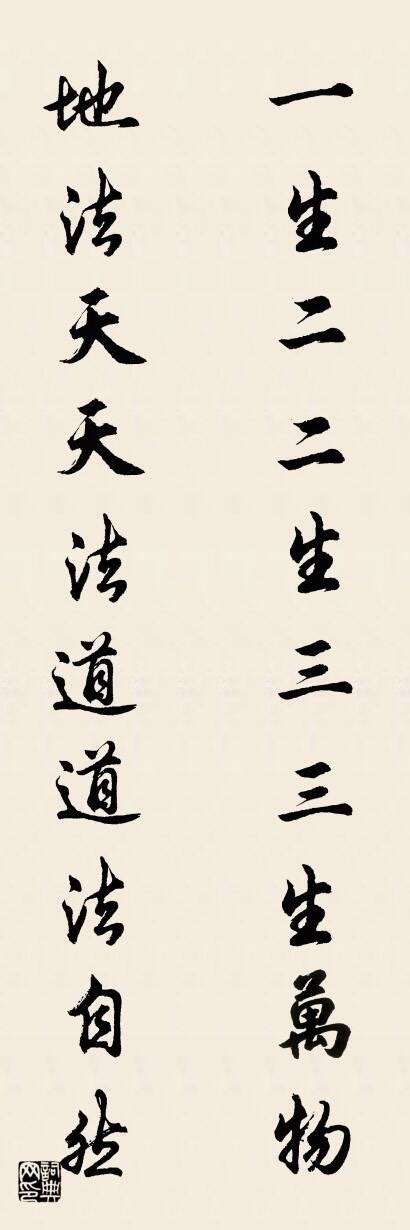 一生二二生三三生萬物
地法天天法道道法自然
詞典网印